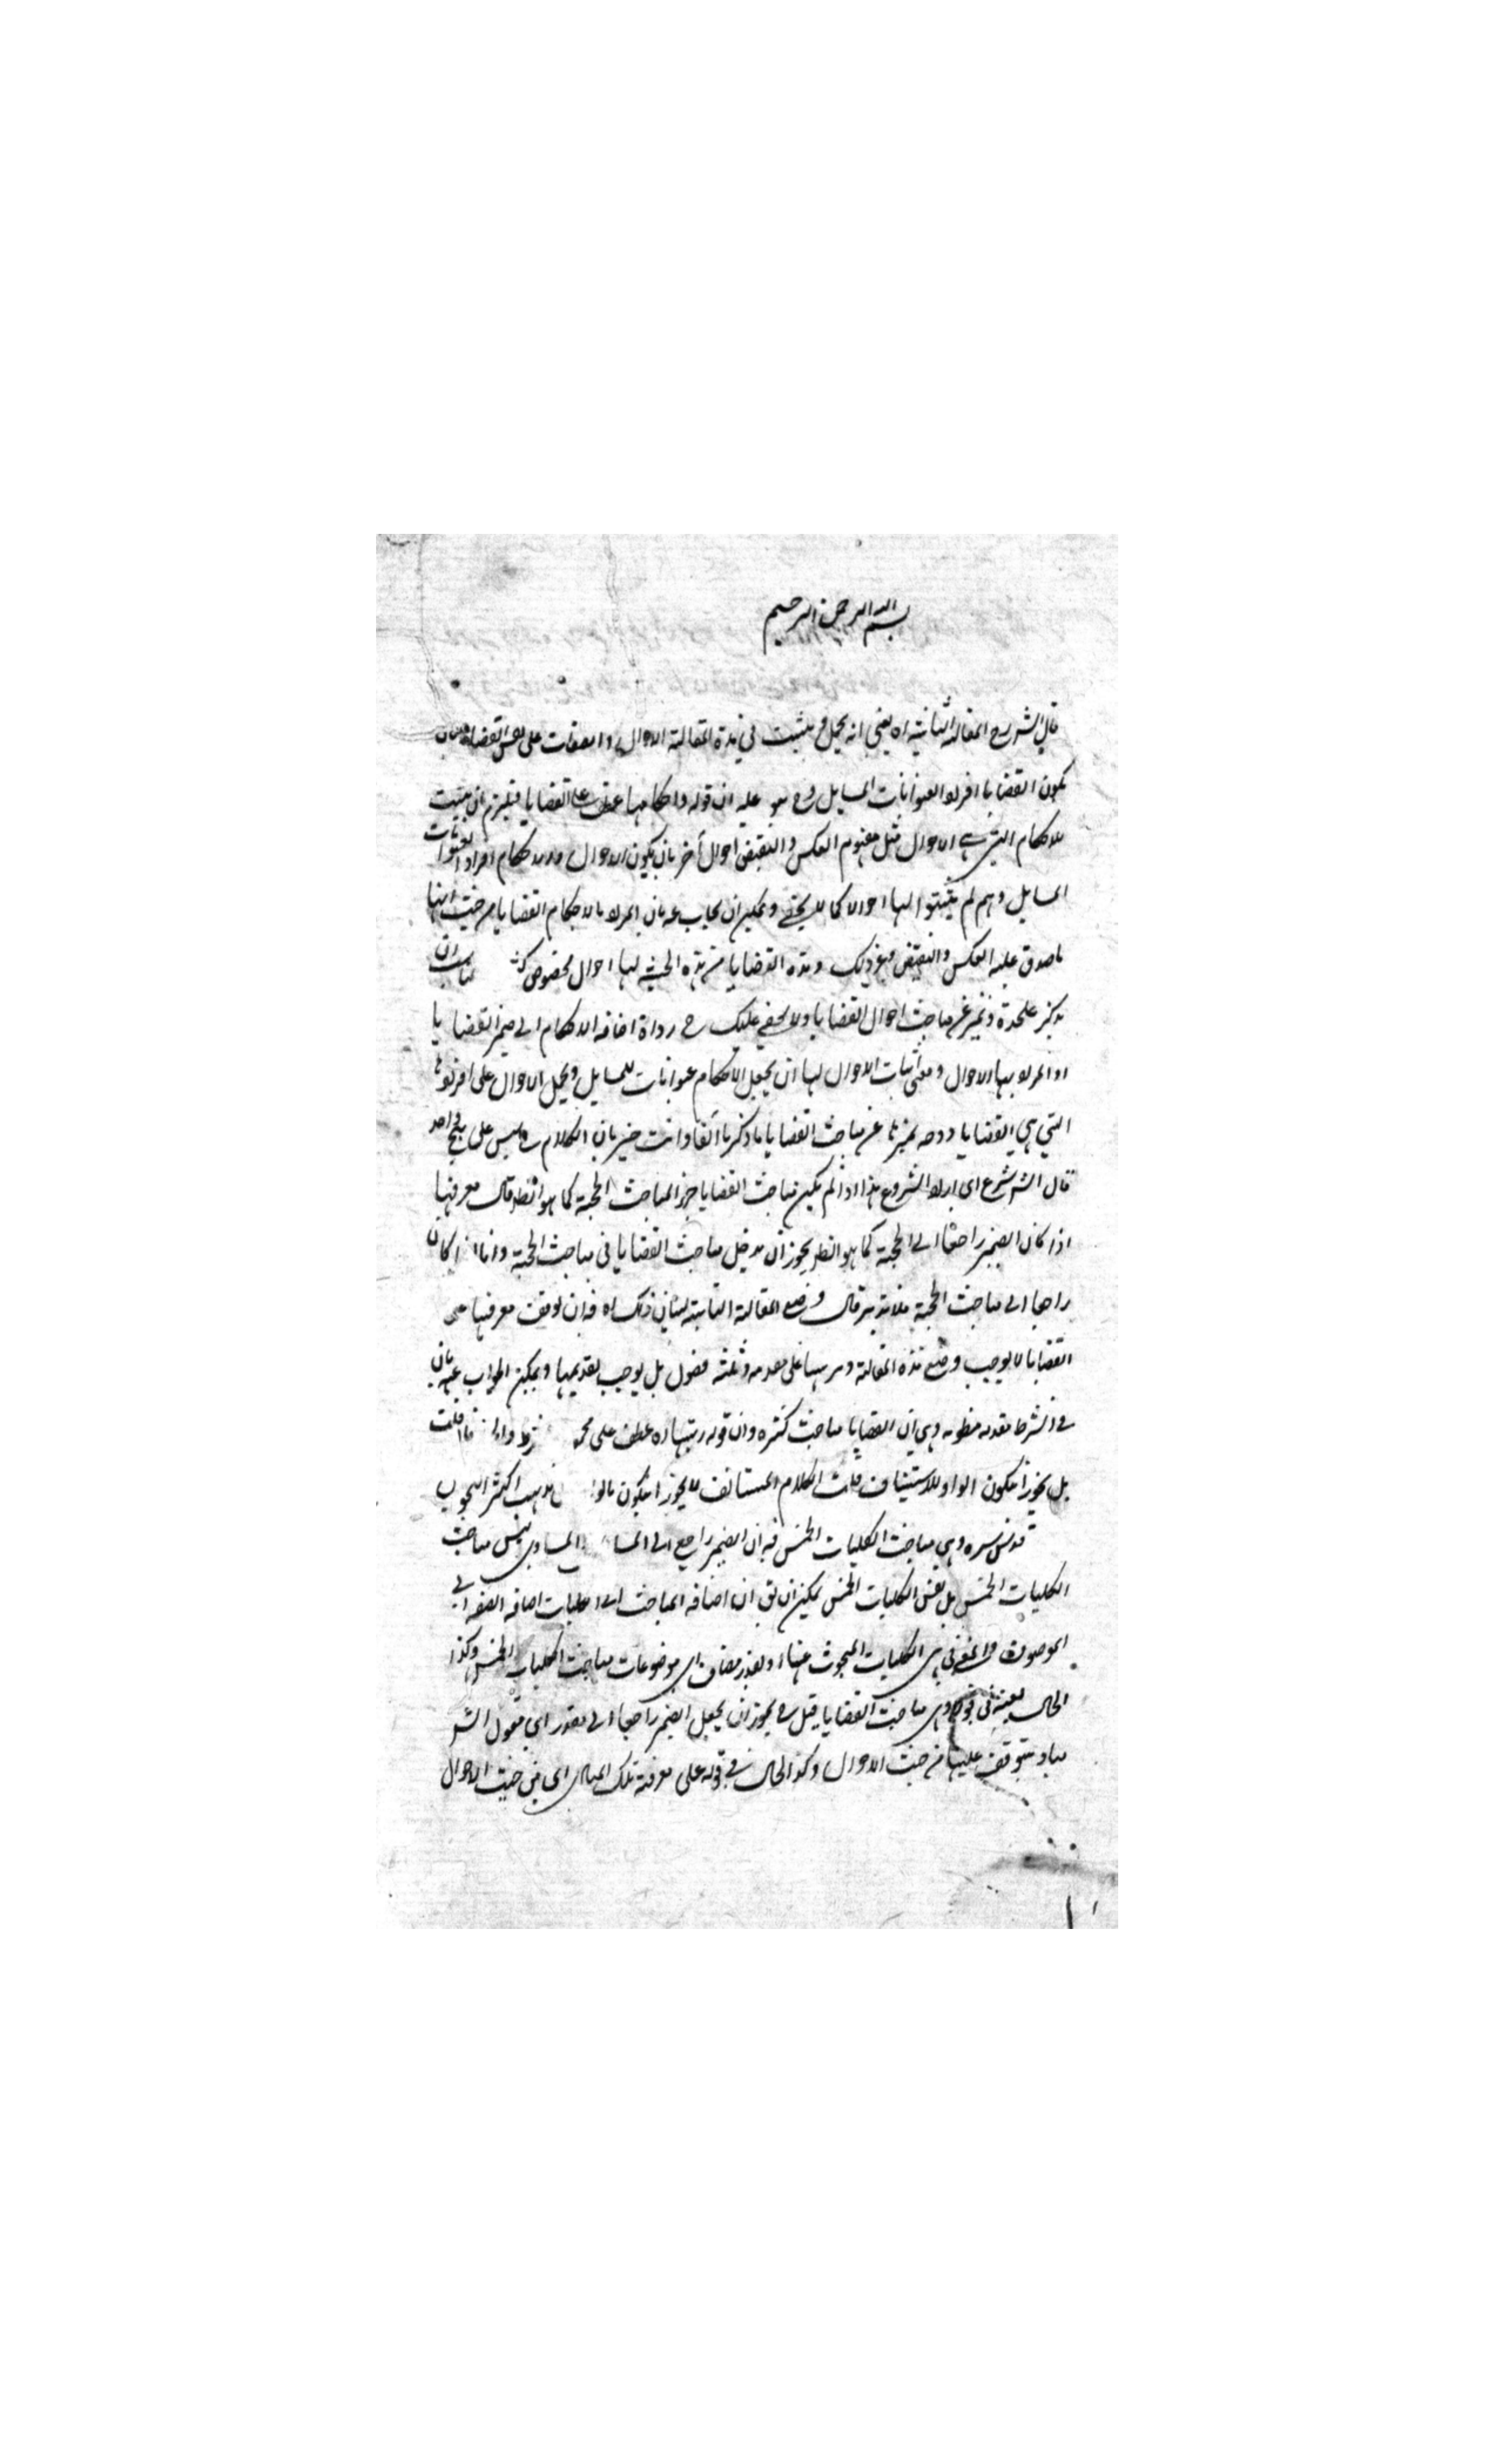 بسم الله الرحمن الرحيم
قال الش رح المقالة الثانية اه يعني انه يحمل ويثبت في هذه المقالة الاحوال والصفات على نفس القضايا بان
يكون القضايا افراد العنوانات المسايل وح عليه ان قوله واحكامها عطف على القضايا فيلزم ان يثبت
للاحكام التي هي الاحوال مثل مفهوم العكس والنقيض احوال أخر بان يكون الاحوال والاحكام افراد العنوانات
المسايل وهم لم يثبتوا لها احوالا كما لا يخفى ويمكن ان يجاب عنه بان المراد بالاحكام القضايا من حيث انها
ما صدق عليه العكس والنقيض وغير ذلك وهذه القضايا من هذه الحيثية لها احوال مخصوصة ان
يذكر علحدة وتميز عن مباحث احوال القضايا ولا يخفى عليك ح رداءة اضافة الاحكام الى ضمير القضايا
او المراد بها الاحوال ومعنى اثبات الاحوال لها ان يجعل الاحكام عنوانات للمسايل ويحمل الاحوال على افرادها
التي هي القضايا ووجه تميزها عن مباحث القضايا ما ذكرنا آنفا وانت خبير بان الكلام ح ليس على نهج واحد
قال الش شرع اى اراد الشروع هذا اذا لم يكن مباحث القضايا جزء المباحث الحجة كما هو الظ قال معرفتها
اذا كان الضمير راجعا الى الحجة كما هو الظ يجوز ان يدخل مباحث القضايا في مباحث الحجة واما اذا كان
راجعا الى مباحث الحجة فلا تدبر قال وضع المقالة الثانية لبيان ذلك اه فيه ان توقف معرفتها على
القضايا لا يوجب وضع هذه المقالة وترتيبها على مقدمة وثلثة فصول بل يوجب تقديمها ويمكن الجواب عنه بان
في الشرط مقدمة مطوية وهي ان القضايا مباحث كثيرة وان قوله رتبها اه عطف على قلت
بل يجوز ان يكون الواو للاستيناف قلت الكلام المستانف لا يجوز ان يكون بالواو مذهب اكثر النحويين
قدس سره وهي مباحث الكليات الخمس فيه ان الضمير راجع الى المبادى ليس مباحث
الكليات الخمس بل نفس الكليات الخمس يمكن ان يق ان اضافة المباحث الى الكليات اضافة الصفة الى
الموصوف والمعنى هى الكليات المبحوث عنها او بعد مضاف اى موضوعات مباحث الكليات الخمس وكذا
الحال بعينه في قوله وهى مباحث القضايا قيل ح يجوز ان يجعل الضمير راجعا الى مقدر اى يقول الش
مباد يتوقف عليها من حيث الاحوال وكذا الحال في قوله على معرفة تلك المبادى اى من حيث الاحوال